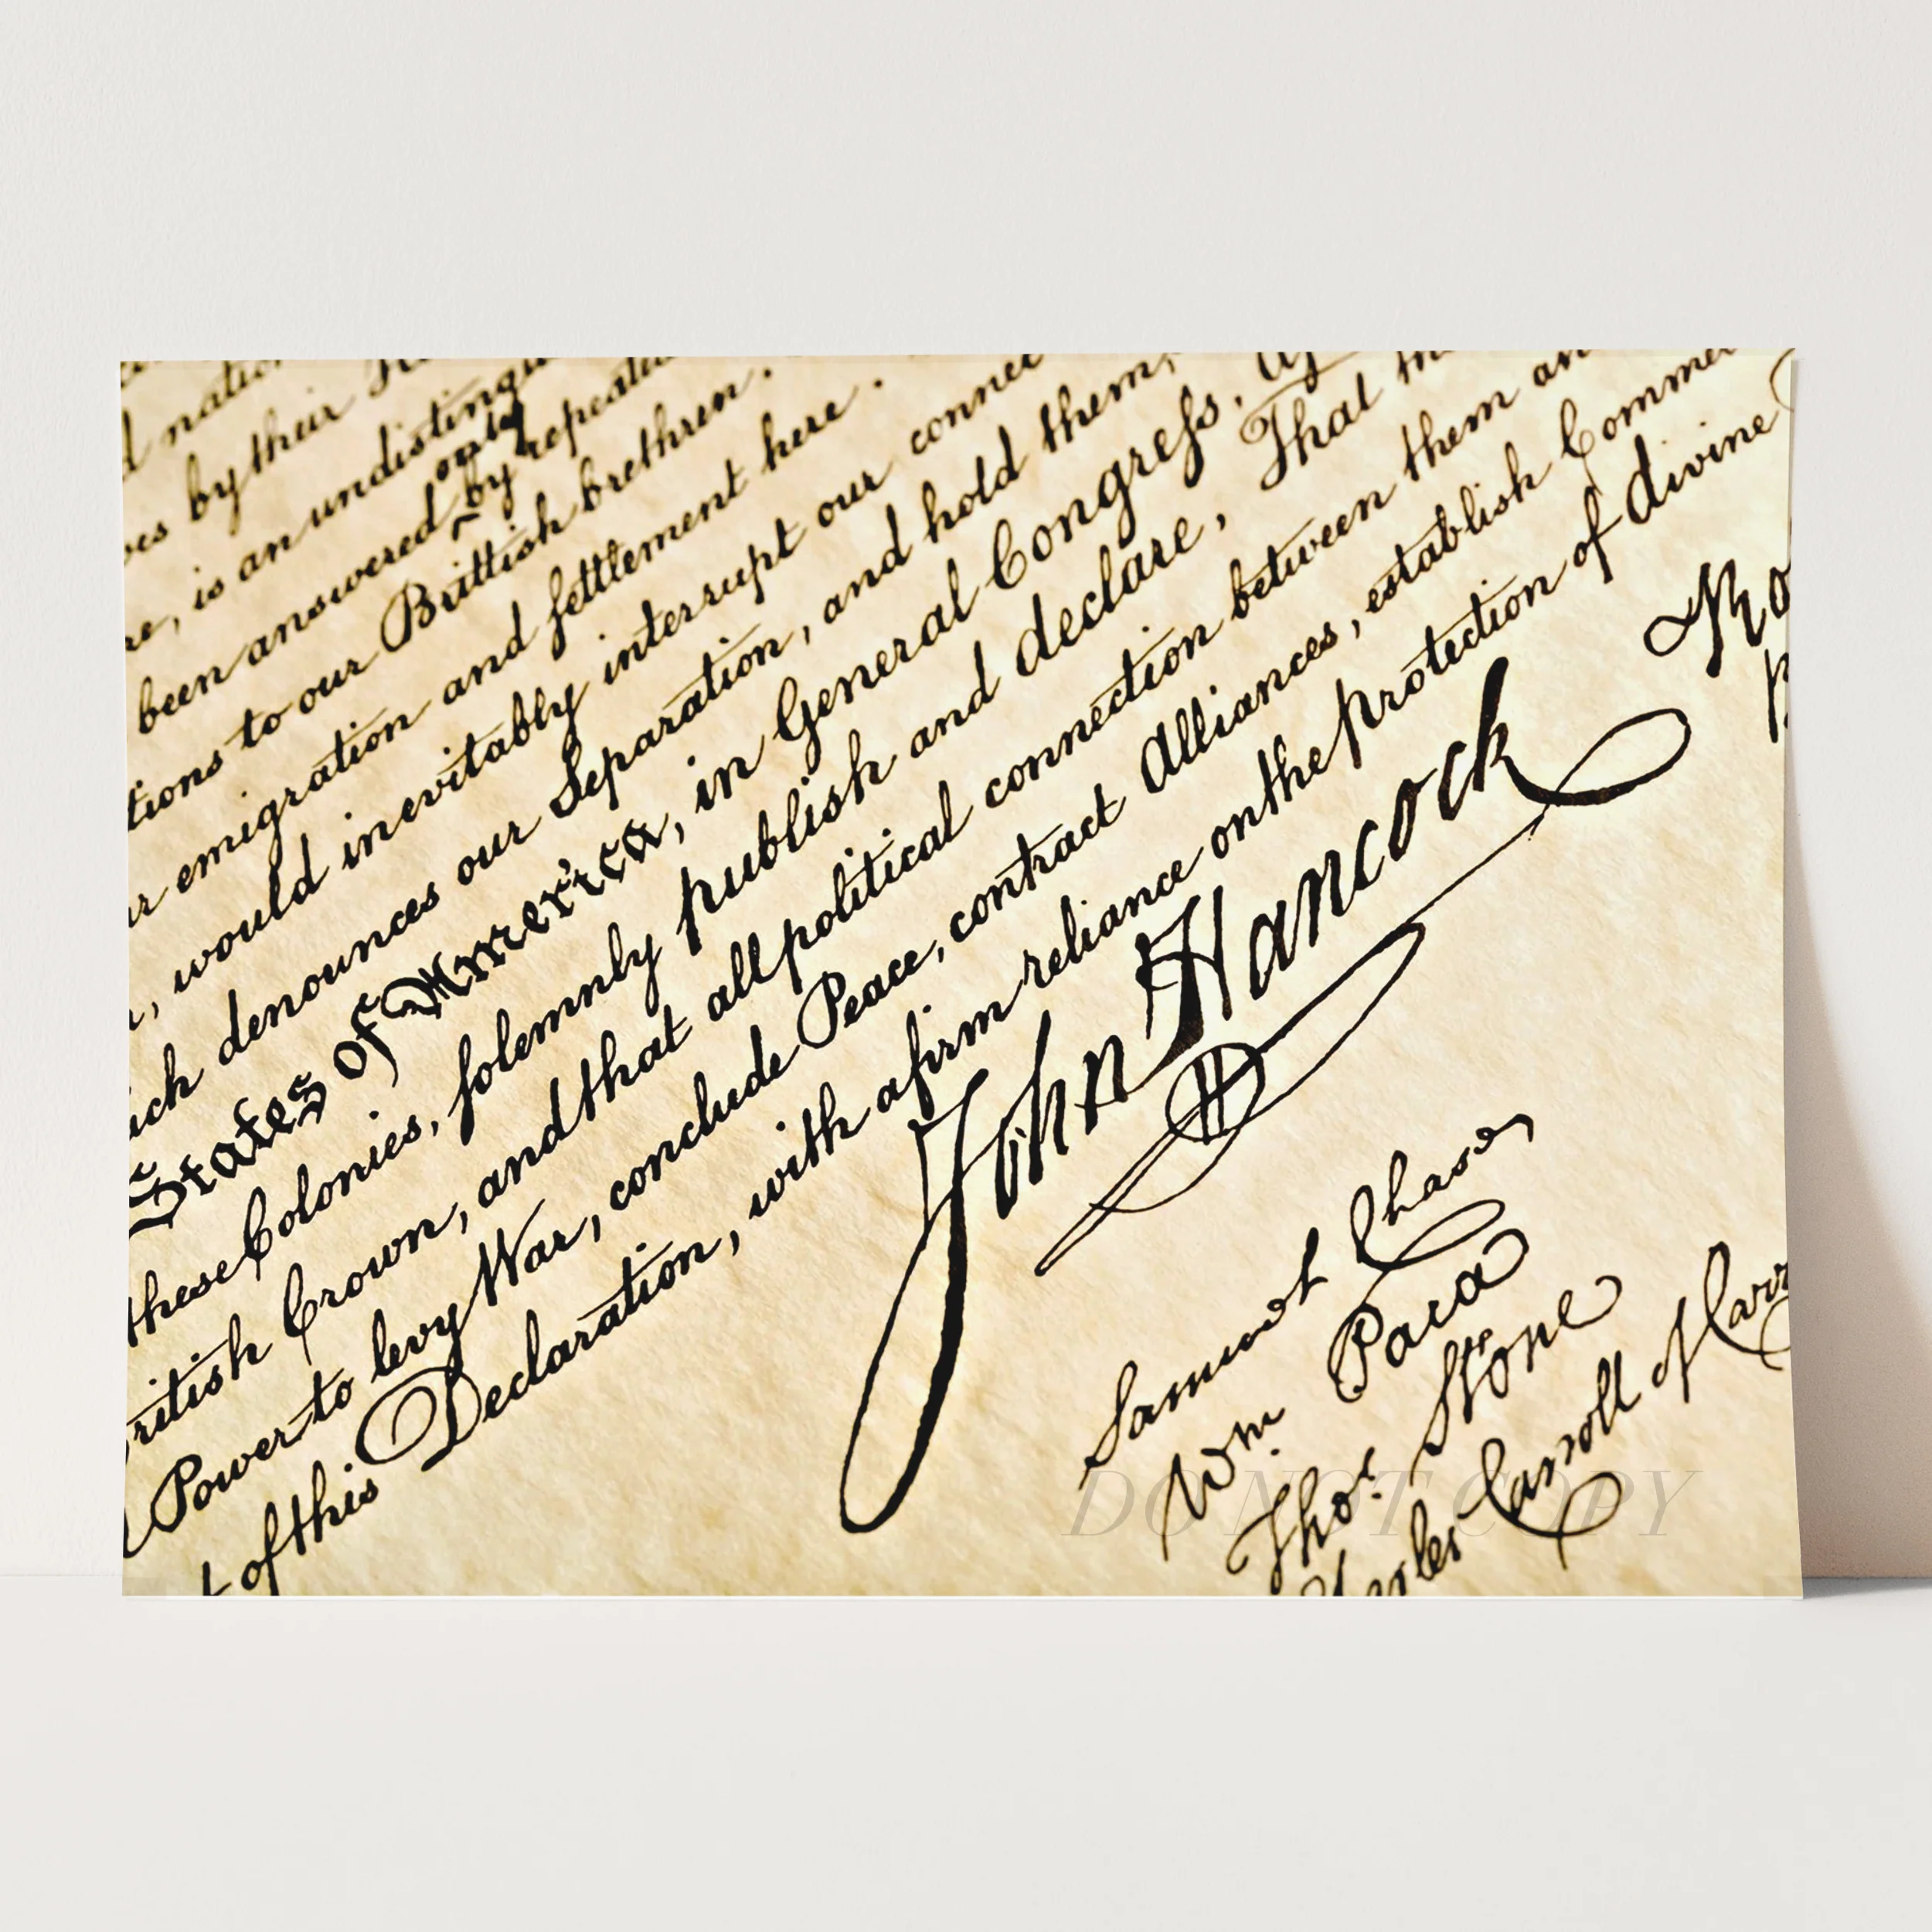 nation
by their
is an undistingu
only
been answered by repeated
tions to our Brittish brethren.
emigration and settlement here.
would inevitably interrupt our connec
denounces our Separation, and hold them,
States of America, in General Congress,
these Colonies, solemnly publish and declare, That
Crown, and that all political connection between them an
Power to levy War, conclude Peace, contract Alliances, establish Commer
of this Declaration, with a firm reliance on the protection of divine
John Hancock
Samuel Chase
Wm Paca
Thos Stone
Carroll of Carr
DO NOT COPY